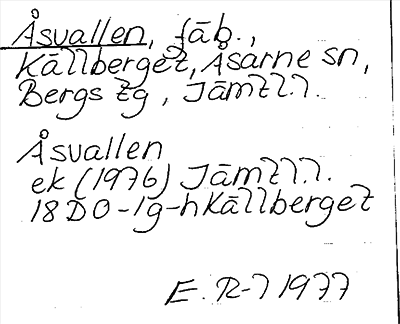 Åsvallen, fäb.,
Källberget, Åsarne sn,
Bergs tg, Jämtl.l.
Åsvallen
ek (1976) Jämtl.l.
18D0-1g-h Källberget
E. R-l 1977